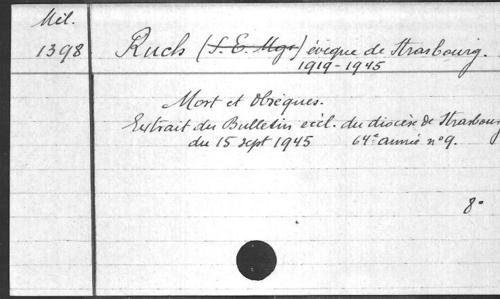 Mil.
1398 Ruch (S. E. Mgr) évêque de Strasbourg.
1919-1945
Mort et Obsèques.
Extrait du Bulletin eccl. du diocèse de Strasbourg
du 15 sept 1945 64e année n° 9.
8°